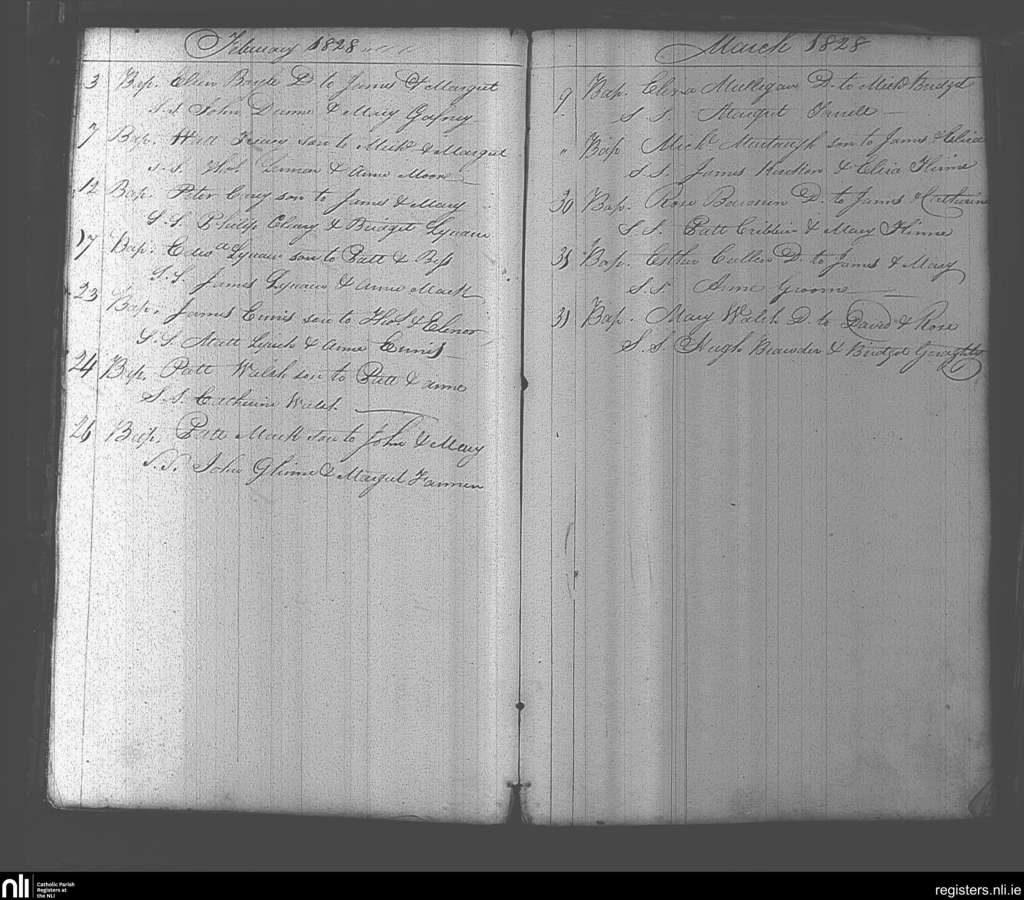 February 1828
3 Bap. Elien Boyle D. to James & Margret
S.S John Dunne & Mary Gafney
7 Bap. Will son to Michl & Margret
S.S. Thos Lennon & Anne Moore
12 Bap. Peter son to James & Mary
S.S. Philip Cleary & Bridget Lynam
17 Bap. Edwd Lynam son to Patt & Bess
S.S. James Lynam & Anne Mack
23 Bap. James Ennis son to Thos & Elenor
S.S Matt Lynch & Anne Ennis
24 Bap. Patt Walsh son to Patt & Anne
S.S. Catherine Walsh
26 Bap. Patt Mack son to John & Mary
S.S. John Glinne & Margret
March 1828
9 Bap. Eliza Mulligan D. to Michl Bridget
S S. Margret
" Bap. Michl son to James & Eliza
S.S. James & Eliza Flinne
30 Bap. Rose D. to James & Catherine
S S. Patt & Mary Flinne
31 Bap. Esther Cullen D. to James & Mary
S.S Anne Groome
31 Bap. Mary Walsh D. to David & Rose
S.S. Hugh & Bridget Geraghty
nli
Catholic Parish
Registers at
the NLI
registers.nli.ie